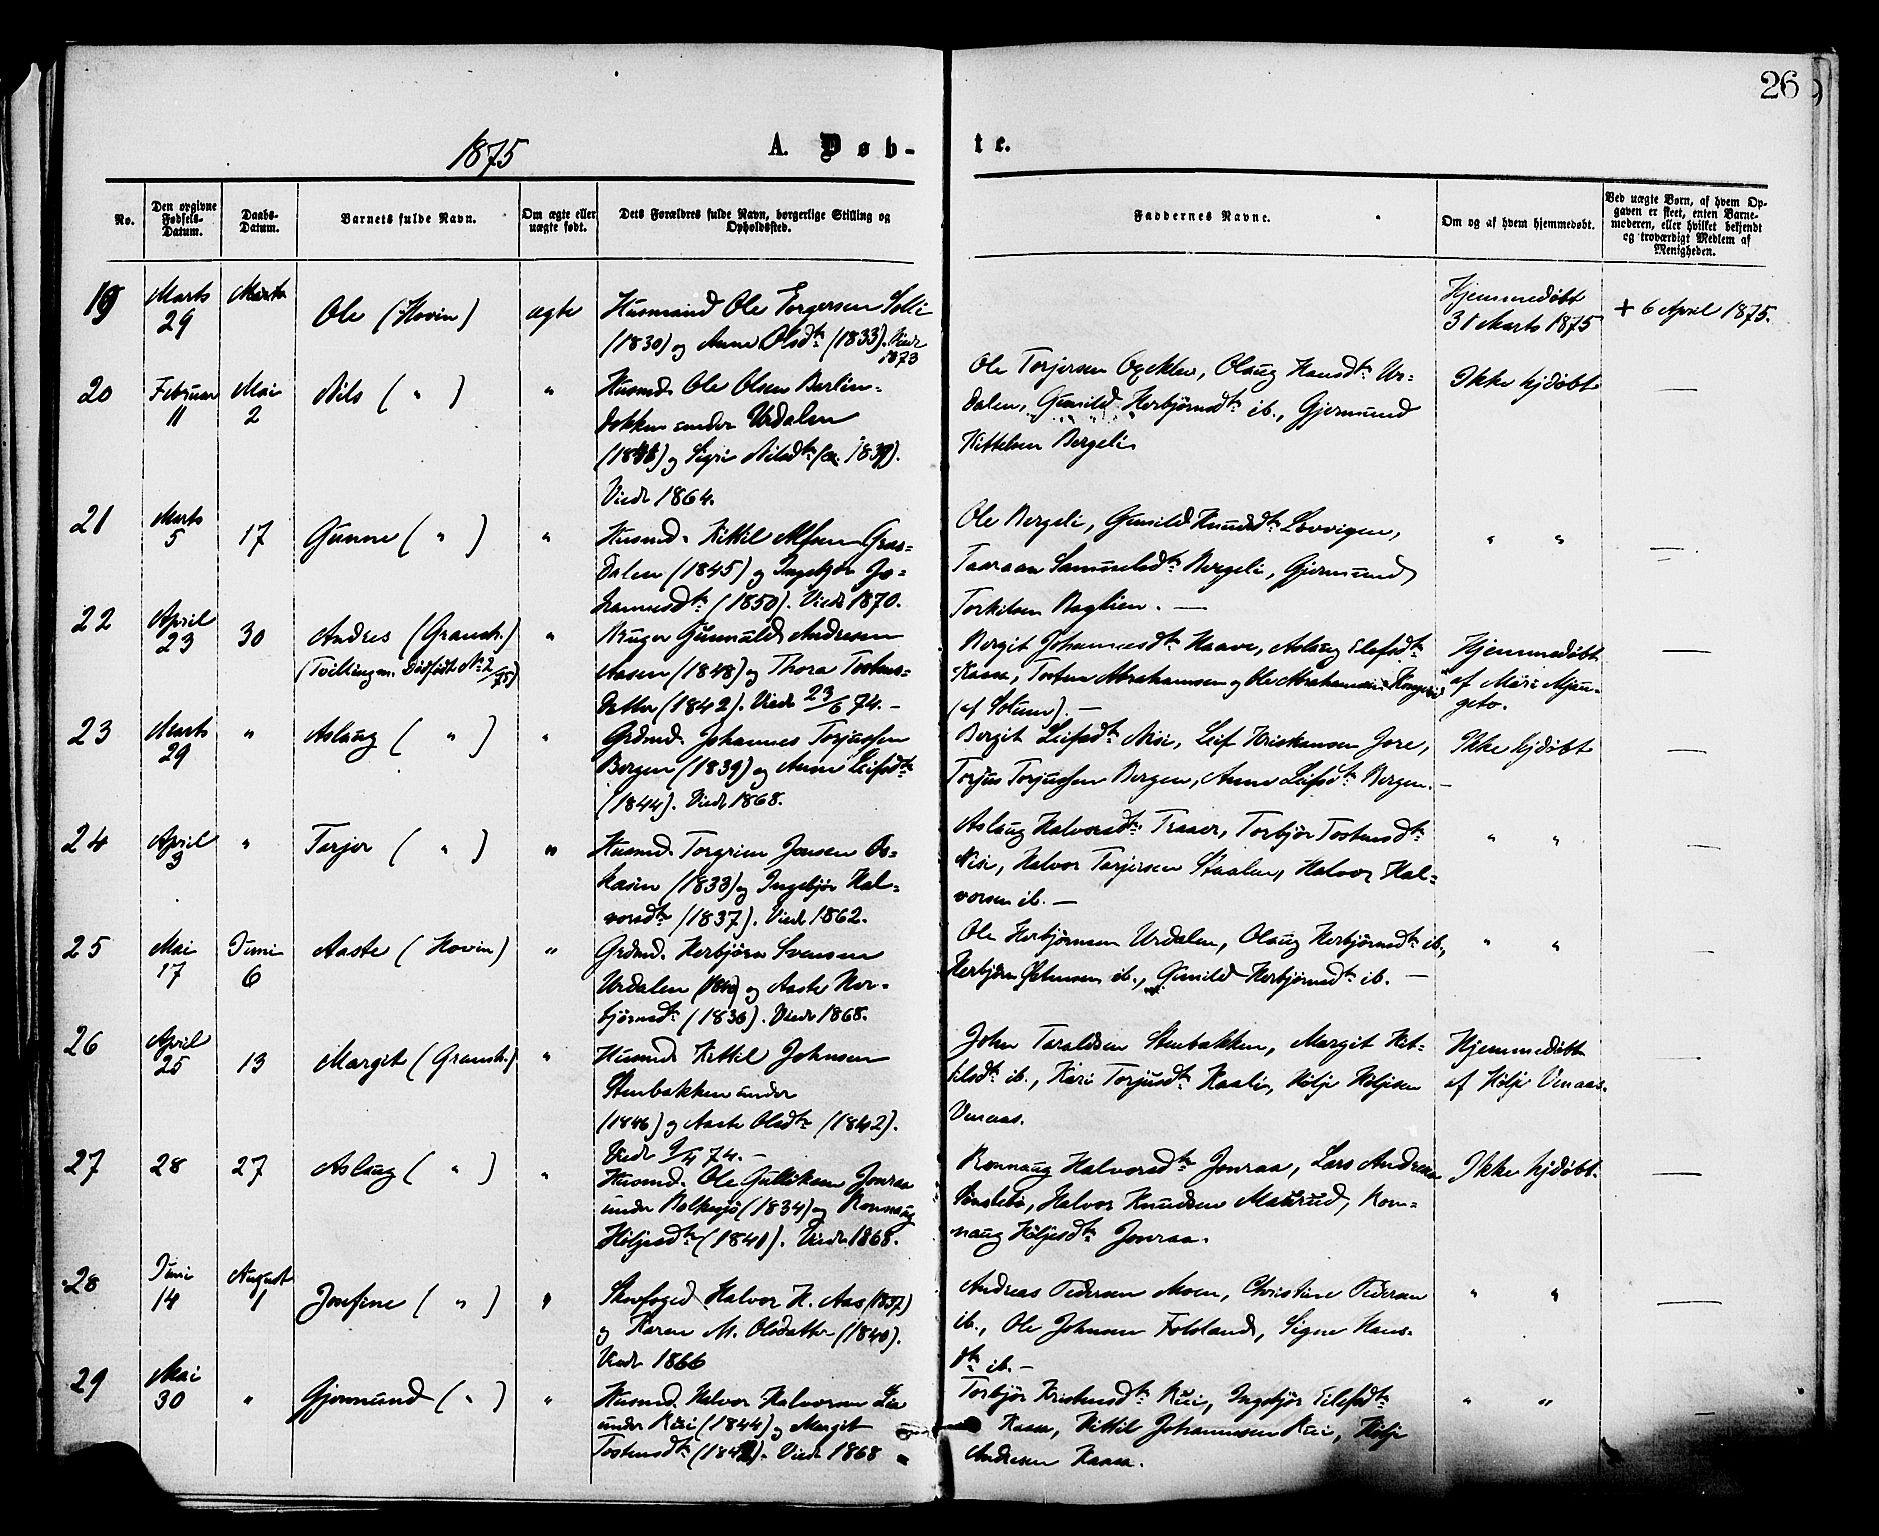 26
1875
A. Døb-
te.
No.
Den opgivne Fødsels-Datum.
Daabs-Datum.
Barnets fulde Navn.
Om ægte eller uægte født.
Dets Forældres fulde Navn, borgerlige Stilling og Opholdssted.
Faddernes Navne.
Om og af hvem hjemmedøbt.
Ved uægte Børn, af hvem Opgaven er skeet, enten Barnemoderen, eller hvilket bekjendt og troværdigt Medlem af Menigheden.
19
Marts 29
Ole (Hovin)
ægte
Husmand Ole Torgersen Solli
(1830) og Anne Olsdtr (1833). Viede 1873
Hjemmedøbt
31 Marts 1875
+ 6 April 1875.
20
Februar 11
Mai 2
Nils ( " )
"
Husmd. Ole Olsen Berlin-
dokken under Urdalen
og Sigri Nilsdtr
Viede 1864.
Ole Torjersen Ogeklev, Olaug Hansdtr Ur-
dalen, Gunild Herbjørnsdtr ib., Gjermund
Kittelsen Bergeli
Ikke hjdøbt
—
21
Marts 5
17
Gunne ( " )
"
Husmd. Kittil Alfsen Gras-
dalen (1845) og Ingebjør Jo-
hannesdtr (1850). Viede 1870.
Ole Bergeli, Gunild Knudsdtr Lovvigen,
Taaraan Samuelsdtr Bergeli, Gjermund
Torkilsen Baglien. —
" "
—
22
April 23
30
Andres (Gransh.)
(Tvillingen. Dødfødt No 2/75)
"
Bruger Gunnuld Andresen
Aasen (1848) og Thora Tostens-
datter (1842). Viede 23/6 74. —
Bergit Johannesdtr Haave, Aslaug Elefsdtr
Kaasa, Tosten Abrahamsen og Ole Abrahamsen
(af Solum). —
Hjemmedøbt
af Mari Mjau-
geto.
23
Marts 29
"
Aslaug ( " )
"
Grdmd. Johannes Torjussen
Bergen (1839) og Anne Leifsdtr
(1844). Viede 1868.
Bergit Leifsdtr Nisi, Leif Kristiansen Jore,
Torjus Torjussen Bergen, Anne Leifsdtr Bergen. —
Ikke hjdøbt
—
24
April 3
"
Torjer ( " )
"
Husmd. Torgrim Jonsen Os-
kasin (1833) og Ingebjør Hal-
vorsdtr (1837). Viede 1862.
Aslaug Halvorsdtr Traaer, Torbjør Tostensdtr
Nisi, Halvor Torjersen Staalen, Halvor Hal-
vorsen ib. —
" "
—
25
Mai 17
Juni 6
Aaste (Hovin)
"
Grdmd. Herbjørn Svensen
Urdalen og Aaste Her-
bjørnsdtr (1836). Viede 1868.
Ole Herbjørnsen Urdalen, Olaug Herbjørnsdtr ib.,
Herbjørn ib., Gunild Herbjørnsdtr ib. —
" "
—
26
April 25
13
Margit (Gransh.)
"
Husmd. Kittil Johnsen
Stenbakken under
(1846) og Aaste Olsdtr (1842).
Viede 9/4 74. —
John Taraldsen Stenbakken, Margit Kit-
tilsdtr ib., Kari Torjusdtr Kaali, Hølje Høljesen
Venaas.
Hjemmedøbt
af Hølje Venaas.
—
27
28
27
Aslaug ( " )
"
Husmd. Ole Gulliksen Jonraa
under Bolkesjø (1834) og Ronnaug
Høljesdtr (1841). Viede 1868.
Ronnaug Halvorsdtr Jonraa, Lars Andresen
Sønstebø, Halvor Knudsen Maurud, Ron-
naug Høljesdtr Jonraa.
Ikke hjdøbt.
—
28
Juni 14
August 1
Josefine ( " )
"
Skovfoged Halvor H. Aas (1837)
og Karen M. Olsdatter (1840).
Viede 1866
Andreas Pedersen Moen, Christine Pedersen
ib., Ole Johnsen Folsland, Signe Hans-
dtr ib. —
" "
—
29
Mai 30
"
Gjermund ( " )
"
Husmd. Halvor Halvorsen Lia
under Rui (1844) og Margit
Tostensdtr Viede 1868
Torbjør Kristensdtr Rui, Ingebjør Eilefsdtr
Kaasa, Kittil Johannesen Rui, Hølje
Andresen Kaasa.
" "
—